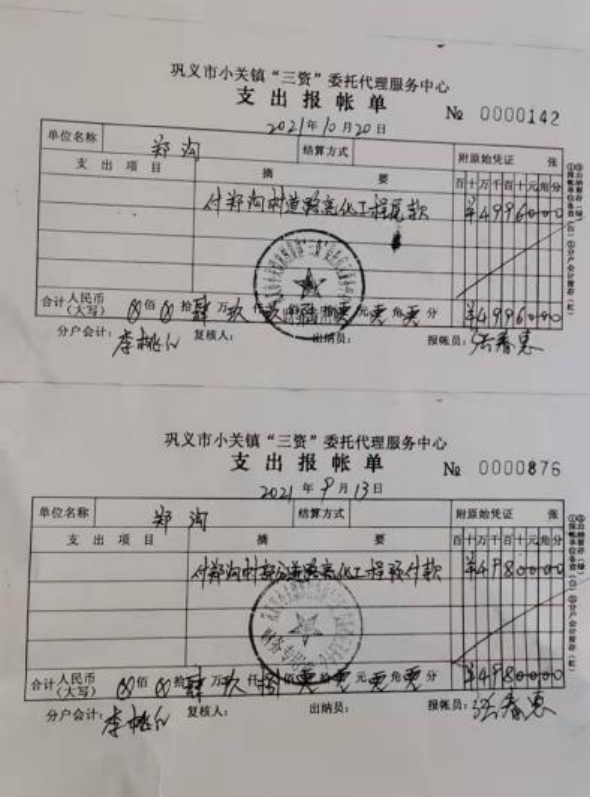 巩义市小关镇“三资”委托代理服务中心
支出报帐单
№ 0000142
2021年10月20日
单位名称 郑沟 结算方式 附原始凭证 张
支出项目 摘要 百十万千百十元角分
付郑沟村道路亮化工程尾款 ¥4996000
合计人民币(大写) 佰 拾肆万玖仟玖佰陆拾零元零角零分 ¥4996000
分户会计: 复核人: 出纳员: 报帐员:张春惠
巩义市小关镇“三资”委托代理服务中心
支出报帐单
№ 0000876
2021年9月13日
单位名称 郑沟 结算方式 附原始凭证 张
支出项目 摘要 百十万千百十元角分
付郑沟村部分道路亮化工程预付款 ¥4980000
财务专用章
合计人民币(大写) 佰 拾肆万玖仟捌佰零拾零元零角零分 ¥4980000
分户会计: 复核人: 出纳员: 报帐员:张春惠